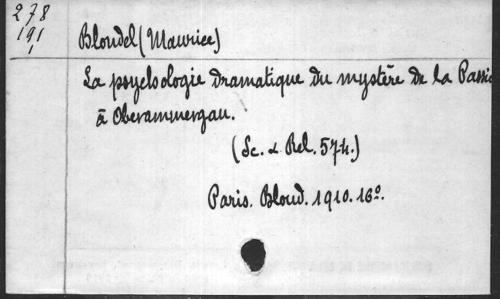 278
191
1
Blondel (Maurice)
La psychologie dramatique du mystère de la Passio
à Oberammergau.
(Sc. & Rel. 574.)
Paris. Bloud. 1910. 16º.